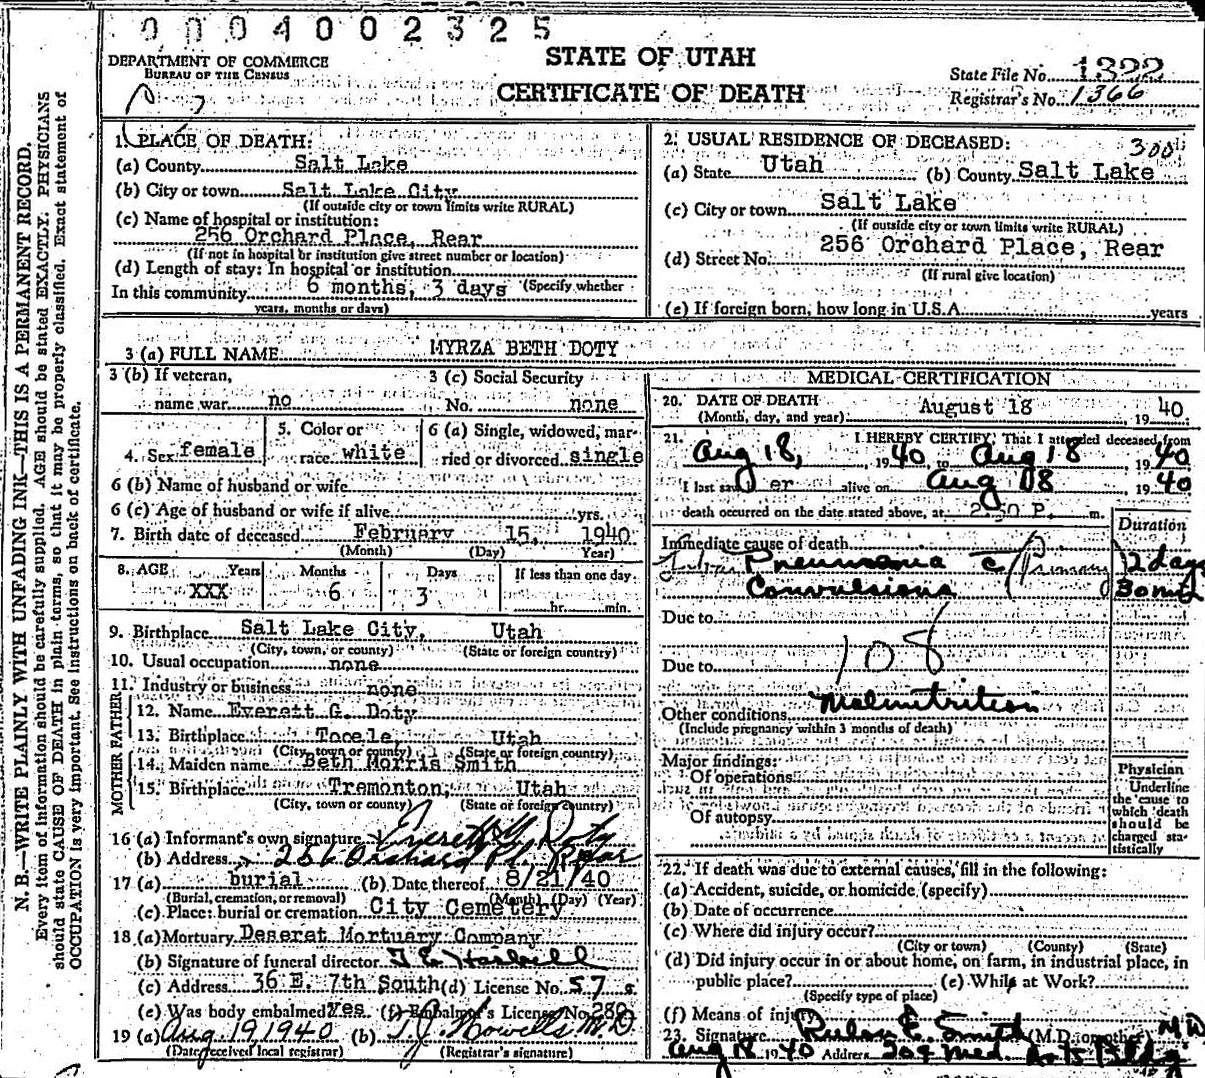 0004002325
DEPARTMENT OF COMMERCE
BUREAU OF THE CENSUS
STATE OF UTAH
CERTIFICATE OF DEATH
State File No. 1322
Registrar's No. 1366
1. PLACE OF DEATH:
(a) County Salt Lake
(b) City or town Salt Lake City
(If outside city or town limits write RURAL)
(c) Name of hospital or institution:
256 Orchard Place, Rear
(If not in hospital or institution give street number or location)
(d) Length of stay: In hospital or institution
In this community 6 months, 3 days (Specify whether
years, months or days)
2. USUAL RESIDENCE OF DECEASED: 300
(a) State Utah (b) County Salt Lake
(c) City or town Salt Lake
(If outside city or town limits write RURAL)
(d) Street No. 256 Orchard Place, Rear
(If rural give location)
(e) If foreign born, how long in U.S.A. years
3 (a) FULL NAME MYRZA BETH DOTY
3 (b) If veteran,
name war no
3 (c) Social Security
No. none
4. Sex female
5. Color or
race white
6 (a) Single, widowed, mar-
ried or divorced single
6 (b) Name of husband or wife
6 (c) Age of husband or wife if alive yrs.
7. Birth date of deceased February 15, 1940
(Month) (Day) Year)
8. AGE Years Months Days If less than one day
XXX 6 3 hr. min.
9. Birthplace Salt Lake City, Utah
(City, town, or county) (State or foreign country)
10. Usual occupation none
11. Industry or business none
FATHER
12. Name Everett G. Doty
13. Birthplace Tooele, Utah
(City, town or county) (State or foreign country)
MOTHER
14. Maiden name Beth Morris Smith
15. Birthplace Tremonton, Utah
(City, town or county) (State or foreign country)
16 (a) Informant's own signature Everett G. Doty
(b) Address 256 Orchard Pl. Rear
17 (a) burial (b) Date thereof 8/21/40
(Burial, cremation, or removal) (Month) (Day) (Year)
(c) Place: burial or cremation City Cemetery
18 (a) Mortuary Deseret Mortuary Company
(b) Signature of funeral director
(c) Address 36 E. 7th South (d) License No. 57
(e) Was body embalmed? yes (f) Embalmer's License No. 280
19 (a) Aug 19 1940 (b) T.J. Howells M.D.
(Date received local registrar) (Registrar's signature)
MEDICAL CERTIFICATION
20. DATE OF DEATH
(Month, day, and year) August 18 1940
21. I HEREBY CERTIFY, That I attended deceased from
Aug 18, 1940 to Aug 18 1940
I last saw er alive on Aug 18 1940
death occurred on the date stated above, at 2:50 P. m.
Duration
Immediate cause of death
Lobar Pneumonia c Primary 2 days
Convulsions
Due to
108
Due to
Malnutrition
Other conditions
(Include pregnancy within 3 months of death)
Major findings:
Of operations
Of autopsy
Physician
Underline
the cause to
which death
should be
charged sta-
tistically
22. If death was due to external causes, fill in the following:
(a) Accident, suicide, or homicide (specify)
(b) Date of occurrence
(c) Where did injury occur?
(City or town) (County) (State)
(d) Did injury occur in or about home, on farm, in industrial place, in
public place? (e) While at Work?
(Specify type of place)
(f) Means of injury
23. Signature Rulon E. Smith (M.D. or other) MD
Aug 18 1940 Address 209 Med. Arts Bldg
N. B.—WRITE PLAINLY WITH UNFADING INK—THIS IS A PERMANENT RECORD.
Every item of information should be carefully supplied. AGE should be stated EXACTLY. PHYSICIANS
should state CAUSE OF DEATH in plain terms, so that it may be properly classified. Exact statement of
OCCUPATION is very important. See instructions on back of certificate.